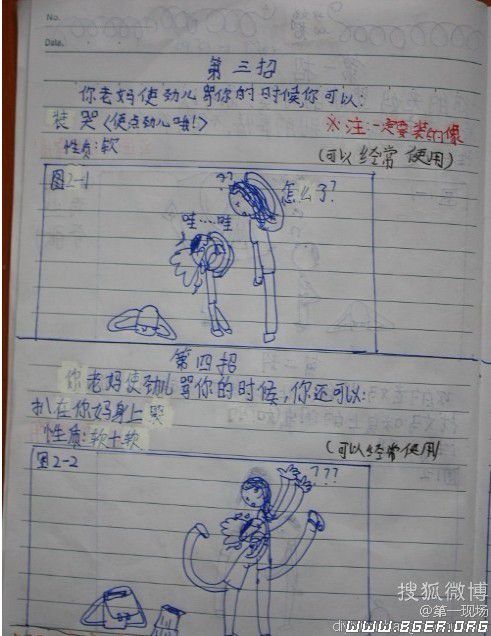 No.
Date.
第三招
你老妈使劲儿骂你的时候,你可以:
装哭<使点劲儿哦!>
※注:一定要装的像
性质:软
(可以经常使用)
图2-1
??
怎么了?
哇…哇
第四招
你老妈使劲儿骂你的时候,你还可以:
扒在你妈身上哭
性质:软+软
(可以经常使用)
图2-2
???
搜狐微博
@第一现场
WWW.BGER.ORG